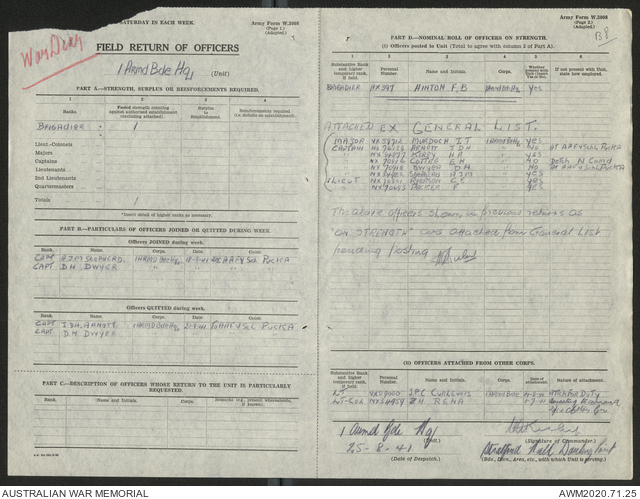 SATURDAY IN EACH WEEK.
Army Form W.3008
(Page 1.)
(Adapted.)
War Diary
FIELD RETURN OF OFFICERS
1 Armd Bde Hq, (Unit)
PART A.—STRENGTH, SURPLUS OR REINFORCEMENTS REQUIRED.
1 2 3 4
Ranks
Posted strength counting against authorised establishment (excluding attached).
Surplus to Establishment.
Reinforcements required (i.e. deficits on establishment).
BRIGADIER 1
Lieut.-Colonels
Majors
Captains
Lieutenants
2nd Lieutenants
Quartermasters
Totals 1
*Insert detail of higher ranks as necessary.
PART B.—PARTICULARS OF OFFICERS JOINED OR QUITTED DURING WEEK.
Officers JOINED during week.
Rank. Name. Corps. Date Cause
CAPT A.J.M SHEPHERD. 1 ARMD BDE HQ AAFV SCH PUCKA
CAPT D.H. DWYER " " "
Officers QUITTED during week.
Rank. Name. Corps. Date Cause
CAPT I.D.H. ARNOTT 1 ARMD BDE HQ TO AAFV SCH PUCKA
CAPT D.H. DWYER " " "
PART C.—DESCRIPTION OF OFFICERS WHOSE RETURN TO THE UNIT IS PARTICULARLY REQUESTED.
Rank. Name and Initials. Corps. Remarks (e.g., present whereabouts, if known).
Army Form W.3008
(Page 2.)
(Adapted.)
B8
PART D.—NOMINAL ROLL OF OFFICERS ON STRENGTH.
(i) Officers posted to Unit (Total to agree with column 2 of Part A).
1 2 3 4 5 6
Substantive Rank and higher temporary rank, if held.
Personal Number.
Name and Initials.
Corps
Whether present with Unit (insert Yes or No).
If not present with Unit, state how employed.
BRIGADIER NX397 HINTON F.B 1 Armd Bde Hq yes
ATTACHED EX GENERAL LIST.
MAJOR MURDOCH I.T 1 ARMD BDE HQ yes
CAPTAIN ARNOTT I D H NO AT AAFV SCH PUCKA
yes
NO Detch N Comd
DWYER D H NO AT AAFV SCH PUCKA
SHEPHERD A J M yes
LIEUT yes
PACKER F yes
The above officers shown in previous returns as
"ON STRENGTH" are attached from General List
pending posting
(ii) OFFICERS ATTACHED FROM OTHER CORPS.
Substantive Rank and higher temporary rank, if held.
Personal Number.
Name and Initials.
Corps.
Date of attachment.
Nature of attachment.
LT J.P.C. 1 ARMD BDE HQ ATTCH FOR DUTY
LT-COL
1 Armd Bde Hq (Unit.)
(Signature of Commander.)
25-8-41
(Date of Despatch.)
Stratford Hall Darling Point
(Bde., Divn., Area, etc., with which Unit is serving.)
AUSTRALIAN WAR MEMORIAL
AWM2020.71.25